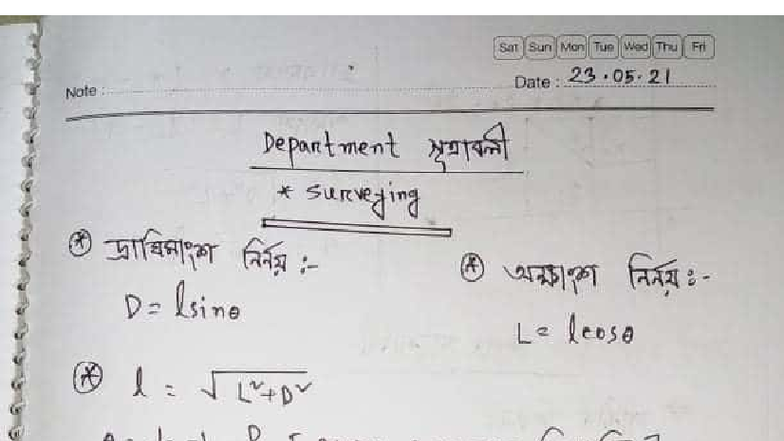 Sat Sun Mon Tue Wed Thu Fri
Note : Date : 23.05.21
Department সূত্রাবলী
* Surveying
* দ্রাঘিমাংশ নির্নয় :-
D = lsinθ
* অক্ষাংশ নির্নয় :-
L = lcosθ
* l = √L²+D²